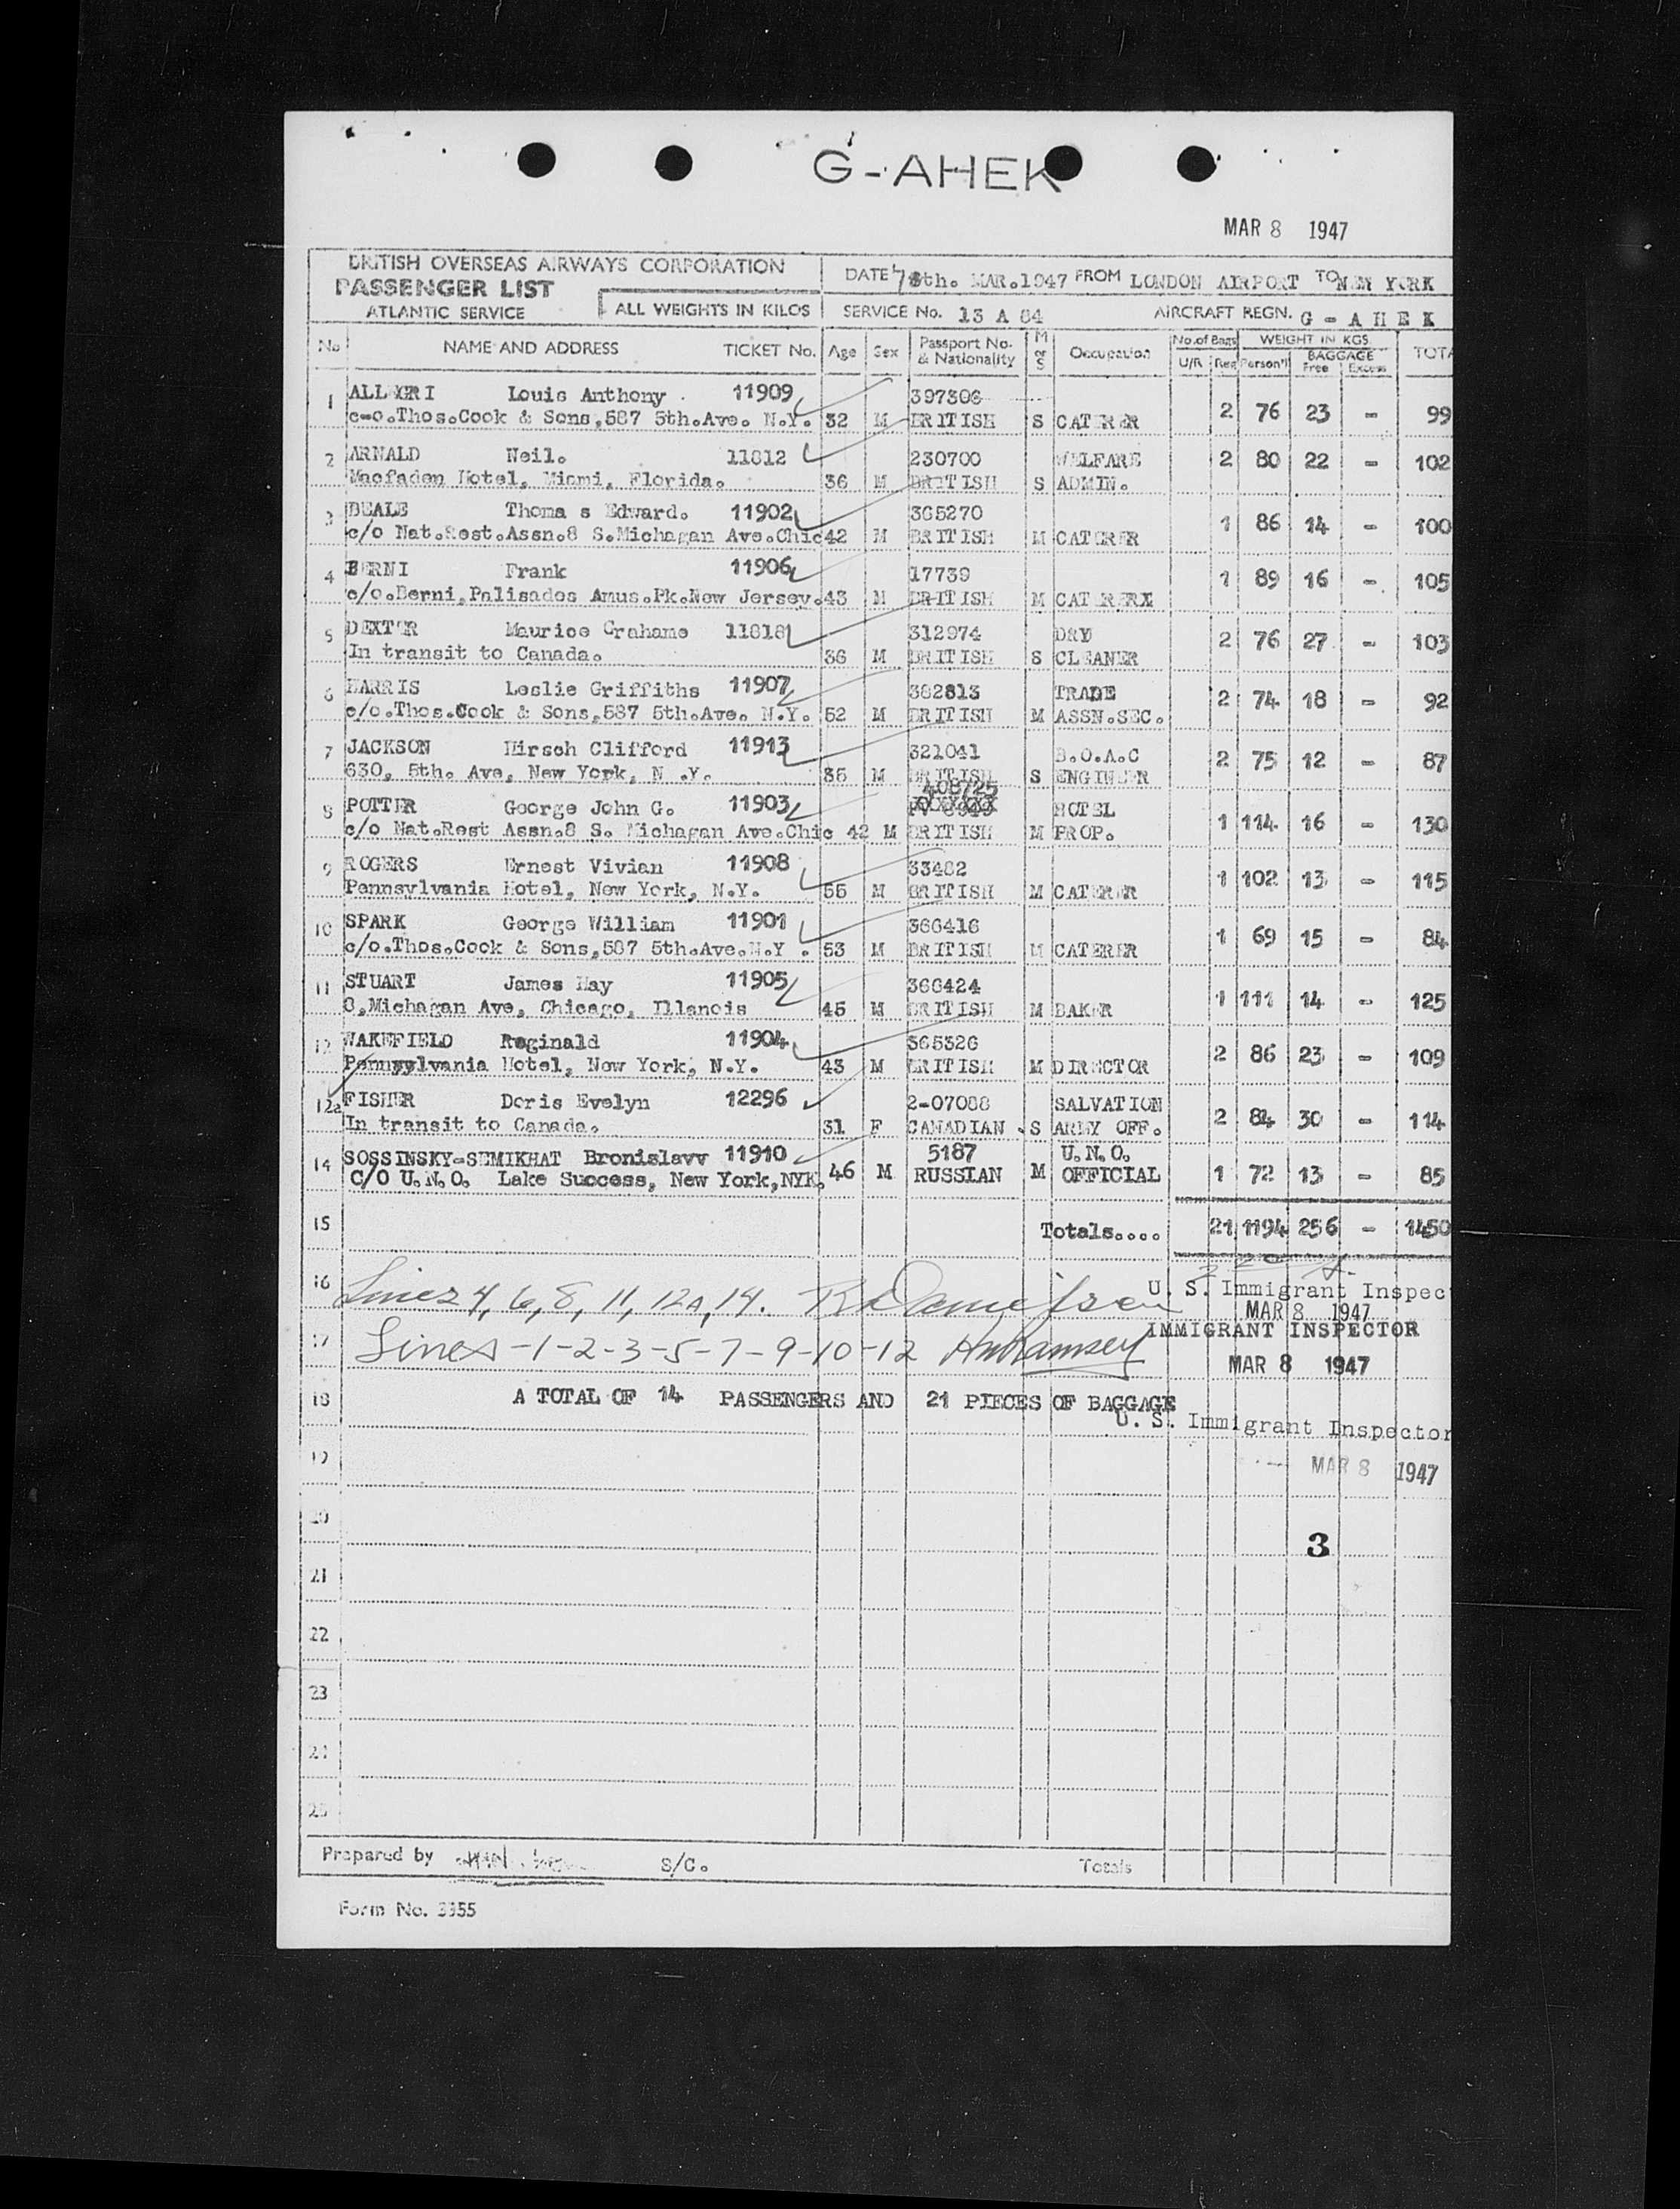 G-AHEK
MAR 8 1947
BRITISH OVERSEAS AIRWAYS CORPORATION
PASSENGER LIST
ATLANTIC SERVICE
ALL WEIGHTS IN KILOS
DATE 7th. MAR.1947 FROM LONDON AIRPORT TO NEW YORK
SERVICE No. 13 A 84 AIRCRAFT REGN. G - A H E K
No NAME AND ADDRESS TICKET No. Age Sex Passport No. & Nationality M or S Occupation No. of Bags U/R Reg WEIGHT IN KGS Person'l BAGGAGE Free Excess TOTA
1 ALLEGRI Louis Anthony 11909 397306
c-o.Thos.Cook & Sons,587 5th.Ave. N.Y. 32 M BRITISH S CATERER 2 76 23 - 99
2 ARNALD Neil. 11812 230700 WELFARE
Macfaden Hotel, Miami, Florida. 36 M BRITISH S ADMIN. 2 80 22 - 102
3 BEALE Thoma s Edward. 11902 365270
c/o Nat.Rest.Assn.8 S.Michagan Ave.Chic 42 M BRITISH M CATERER 1 86 14 - 100
4 BERNI Frank 11906 17739
c/o.Berni,Palisades Amus.Pk.New Jersey. 43 M BRITISH M CATERERX 1 89 16 - 105
5 DEXTER Maurice Grahame 11818 312974 DRY
In transit to Canada. 36 M BRITISH S CLEANER 2 76 27 - 103
6 HARRIS Leslie Griffiths 11907 362813 TRADE
c/o.Thos.Cook & Sons,587 5th.Ave. N.Y. 52 M BRITISH M ASSN.SEC. 2 74 18 - 92
7 JACKSON Hirsch Clifford 11913 321041 B.O.A.C
630, 5th. Ave, New York, N .Y. 35 M BRITISH S ENGINEER 2 75 12 - 87
408725
8 POTTER George John G. 11903 HOTEL
c/o Nat.Rest Assn.8 S. Michagan Ave.Chic 42 M BRITISH M PROP. 1 114 16 - 130
9 ROGERS Ernest Vivian 11908 33482
Pennsylvania Hotel, New York, N.Y. 55 M BRITISH M CATERER 1 102 13 - 115
10 SPARK George William 11901 366416
c/o.Thos.Cook & Sons,587 5th.Ave.N.Y . 53 M BRITISH M CATERER 1 69 15 - 84
11 STUART James Hay 11905 366424
8,Michagan Ave, Chicago, Illanois 45 M BRITISH M BAKER 1 111 14 - 125
12 WAKEFIELD Reginald 11904 365326
Pennyylvania Hotel, New York, N.Y. 43 M BRITISH M DIRECTOR 2 86 23 - 109
12a FISHER Doris Evelyn 12296 2-07088 SALVATION
In transit to Canada. 31 F CANADIAN S ARMY OFF. 2 84 30 - 114
14 SOSSINSKY-SEMIKHAT Bronislavv 11910 5187 U.N.O.
C/O U.N.O. Lake Success, New York,NYK. 46 M RUSSIAN M OFFICIAL 1 72 13 - 85
15 Totals.... 21 1194 256 - 1450
16 Lines 4, 6, 8, 11, 12A, 14.
U. S. Immigrant Inspec
MAR 8 1947
IMMIGRANT INSPECTOR
17 Lines -1-2-3-5-7-9-10-12 Ramsey
MAR 8 1947
18 A TOTAL OF 14 PASSENGERS AND 21 PIECES OF BAGGAGE
U. S. Immigrant Inspector
19
MAR 8 1947
20
3
21
22
23
24
25
Prepared by S/C. Totals
Form No. 3355